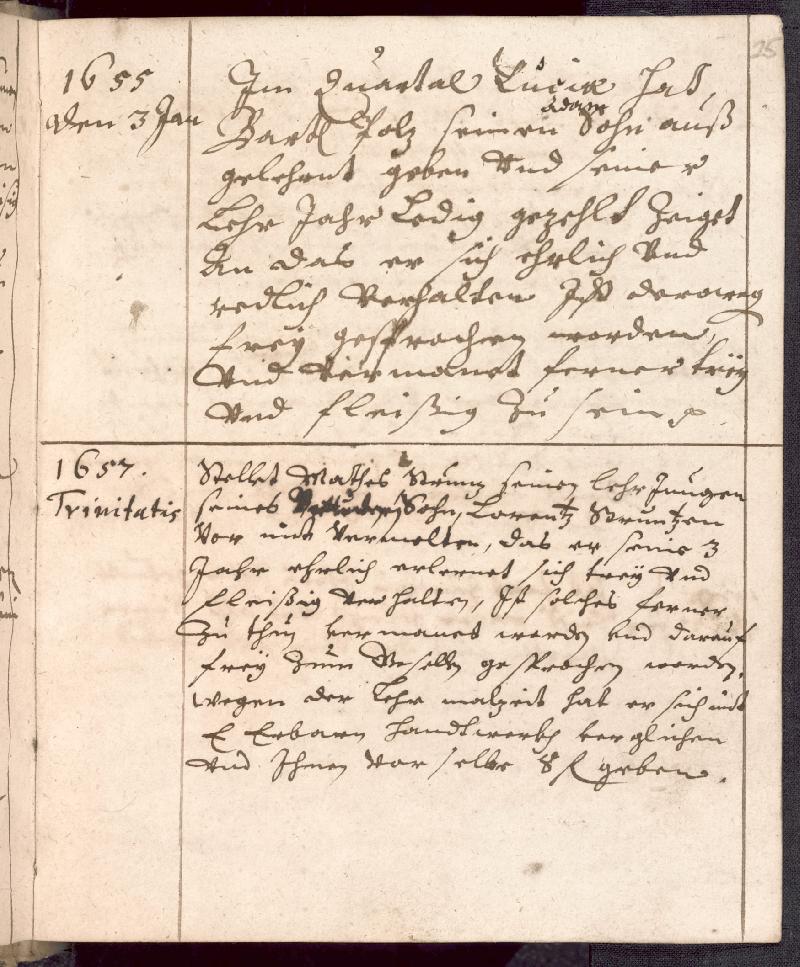 25
1655
den 3 Jan
Im Quartal Luciæ hat,
Bartl Polz seinen Adam Sohn auß
gelehrnt geben Vnd seiner
Lehr Jahr Ledig gezehlt Zeiget
An das er sich ehrlich Vnd
redlich Verhalten Ist deroweg
frey gesprochen worden,
Vnd Vermanet ferner trey
Vnd fleißig Zu sein
1657.
Trinitatis
Stellet Mathes Strunz seinen lehr Jungen
seines Sohn, Lorentz Struntzen
Vor mit Vermelten, das er seine 3
Jahr ehrlich erlernet sich trey Vnd
fleißig Verhalten, Ist solches ferner
Zu thun vermanet worden vnd darauf
frey Zum Gesellen gesprochen worden.
wegen der Lehr malzeit hat er sich mit
E Erbarn Handtwerkh verglichen
Vnd Ihnen Vor selbe 8 f geben.